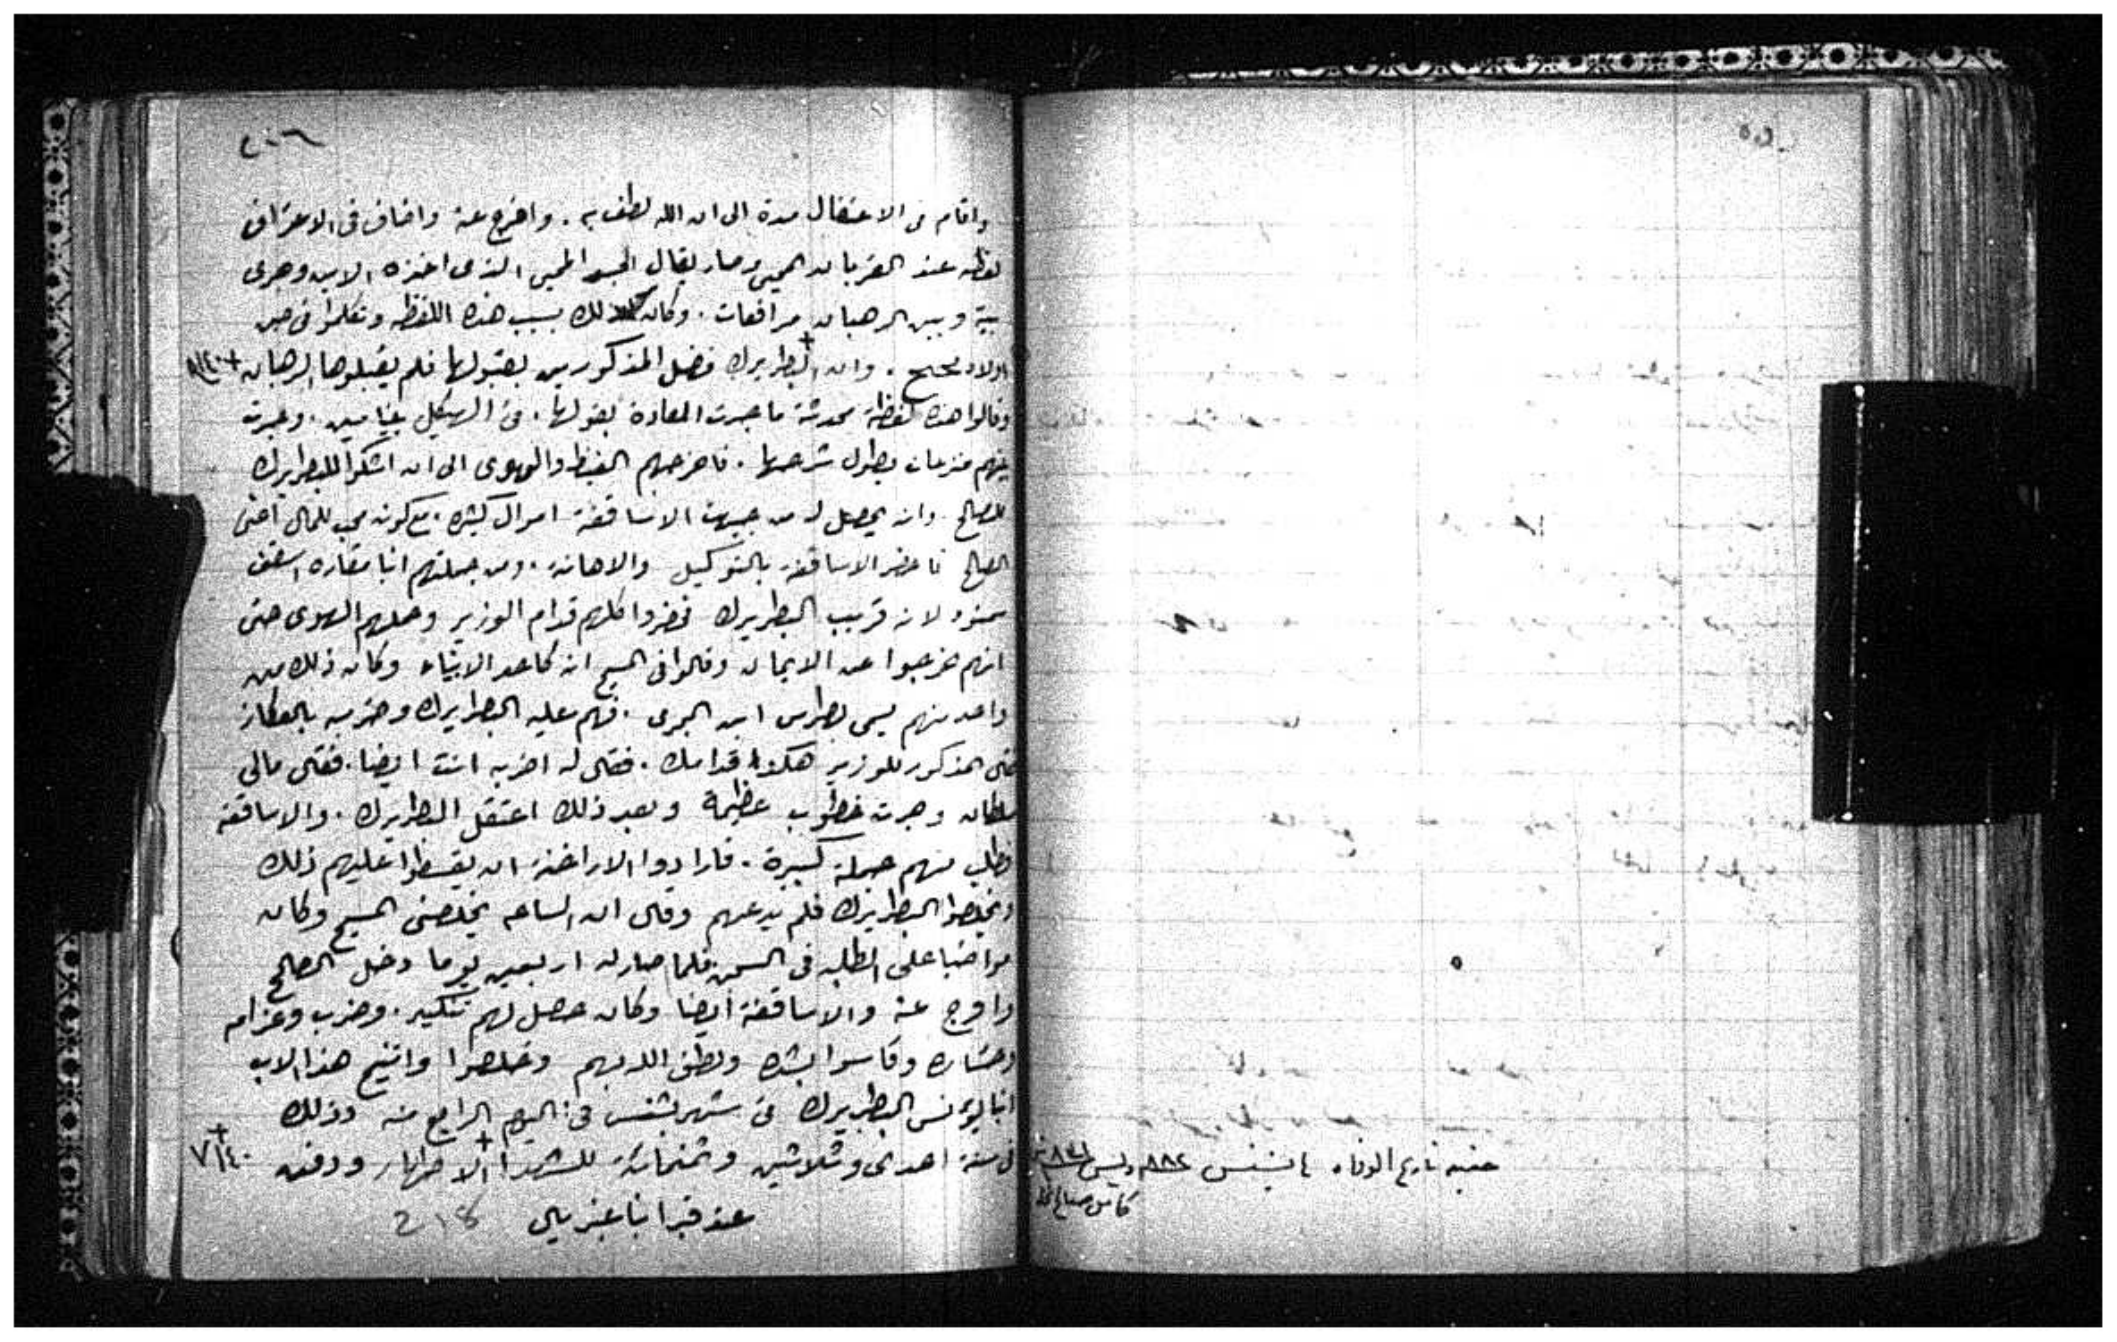 ٢٠٦
واقام فى الاعتقال مدة الى ان الله لطف به . وافرج عنه واضاف فى الاعتراف
لفظه عند القربان المحيي وصار يقال الجسد المحيي الذى اخذه الابن وجرى
بينه وبين الرهبان مرافعات . وكان ذلك بسبب هذه اللفظه وتكلموا فى
وان البطريرك المذكورين بقبولها فلم يقبلوها الرهبان
وقالوا هذه لفظة محدثة ما جرت العادة بقولها . فى الهيكل بنيامين . وجرت
بينهم يطول شرحها . فاخرجهم الغيظ والهوى الى ان اشكوا للبطريرك
للصالح وانه يحصل له من جهت الاساقفة اموال كثيره . مع كونه محب للمال اعنى
الصالح فاحضر الاساقفه بالتوكيل والاهانه . ومن جملتهم انبا مقاره اسقف
سمنود لانه قريب البطريرك فحضروا كلهم قدام الوزير وحملهم الهوى حتى
انهم خرجوا عن الايمان وقالوا فى المسيح انه كاحد الانبياء وكان ذلك من
واحد منهم يسمى بطرس ابن . عليه البطريرك وضربه بالعكاز
فقال المذكور للوزير هكذا قدامك . فقال له اضربه انت ايضا . فقال مالى
سلطان وجرت خطوب عظيمة وبعد ذلك اعتقل البطريرك . والاساقفة
فطلب منهم جملة كبيرة . فارادوا الاراخنه ان يقسطوا عليهم ذلك
ويخلصوا البطريرك فلم يدعهم وقال ان الساعه يخلصنى المسيح وكان
مواضبا على الطلبه فى السجن فلما صار له اربعين يوما دخل الصالح
وافرج عنه والاساقفة ايضا وكان حصل لهم تنكير . وضرب وغرامه
وخساره وقاسوا شده ولطف الله بهم وخلصوا واتنيح هذا الاب
انبا يونس البطريرك فى شهر بشنس فى اليوم الرابع منه وذلك
فى سنة احدى وثلاثين وثمنمائة للشهدا الاطهار ودفن ٧١٤٠
عند قبر انبا غبريال 218
تاريخ الوفاه ٤ بشنس ٨٨٢ وليس ٨٣١
كامل صالح نخله